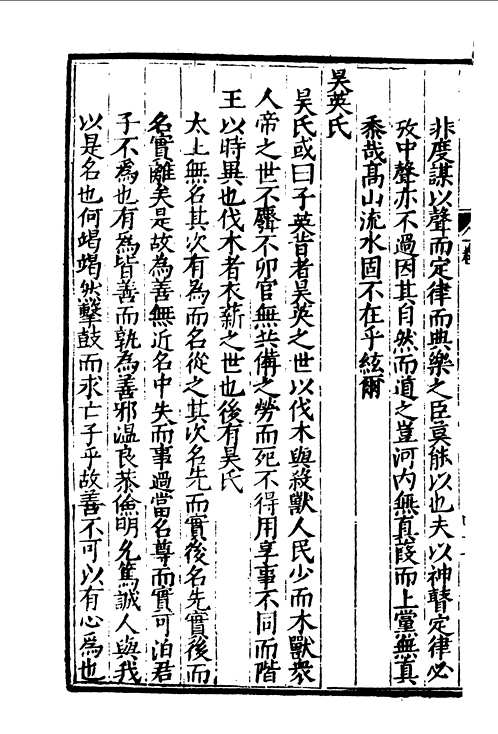 非度謀以聲而定律而典樂之臣莫能以也夫以神瞽定律必
攷中聲亦不過因其自然而道之豈河内無真葭而上黨無真
黍哉高山流水固不在乎絃爾
吴英氏
吴氏或曰子英昔者吴英之世以伐木與殺獸人民少而木獸衆
人帝之世不麛不卵官無共備之勞而死不得用享事不同而階
王以時異也伐木者衣薪之世也後有吴氏
太上無名其次有為而名從之其次名先而實後名先實後而
名實離矣是故為善無近名中失而事過當名尊而實可泊君
子不為也有為皆善而孰為善邪温良恭儉明允篤誠人與我
以是名也何竭竭然擊鼓而求亡子乎故善不可以有心為也